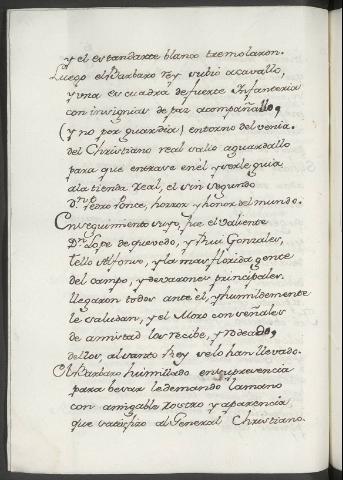 y el estandarte blanco tremolaron.
Luego el Barbaro rey subio acavallo,
y una escuadra de fuerte Infanteria
con insignias de paz acompañallo,
(y no por guardia) entorno del venia.
del Christiano real salio aguardallo
para que entrase en el y serle guia
a la tienda Real, el sin segundo
Dn. Pedro Ponce, horror y honor del mundo.
En seguimiento suyo fue el valiente
Dn. Lope de quevedo, y Rui Gonzales,
Tello Alfonso, y la mas florida gente
del campo, y de varones principales.
llegaron todos ante èl, y humildemente
le saludan, y el Moro con señales
de amistad los recibe, y rodeado,
dellos, al santo Rey se lo han llevado.
El Barbaro humillado en su presencia
para besar le demando la mano
con amigable rostro y aparencia
que satisfizo al General Christiano.